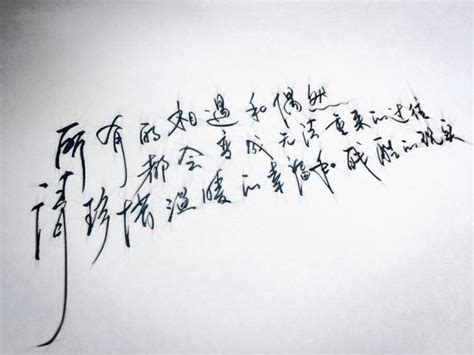 所有的相遇和偶然
都会变成无法重来的过往
请珍惜温暖的幸福和残酷的现实